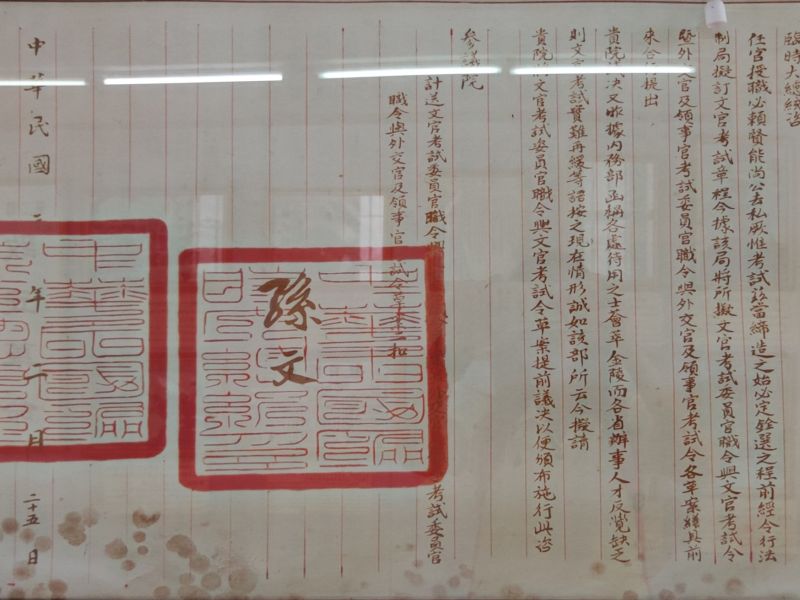 臨時大總統咨
任官授職必賴賢能尚公去私厥惟考試茲當締造之始必定銓選之程前經令行法
制局擬訂文官考試章程今據該局將所擬文官考試委員官職令與文官考試令
暨外交官及領事官考試委員官職令與外交官及領事官考試令各草案繕具前
來合 提出
貴院 決又昨據內務部函稱各處待用之士薈萃金陵而各省辦事人才反覺缺乏
則文官考試實難再緩等語按之現在情形誠如該部所云今擬請
貴院將文官考試委員官職令與文官考試令草案提前議決以便頒布施行此咨
參議院
計送文官考試委員官職令與 考試委員官
職令與外交官及領事官 試令草案 扣
孫文
中華民國 年 月二十五日